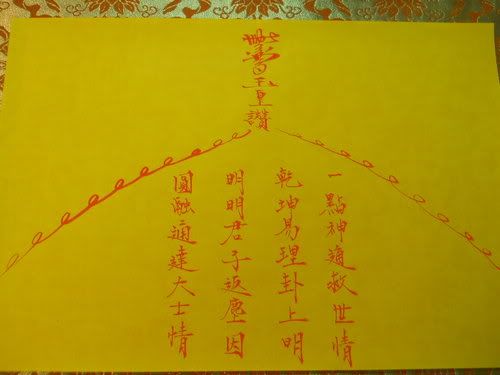 玉皇讚
一點神通救世情
乾坤易理卦上明
明明君子返塵因
圓融通達大士情